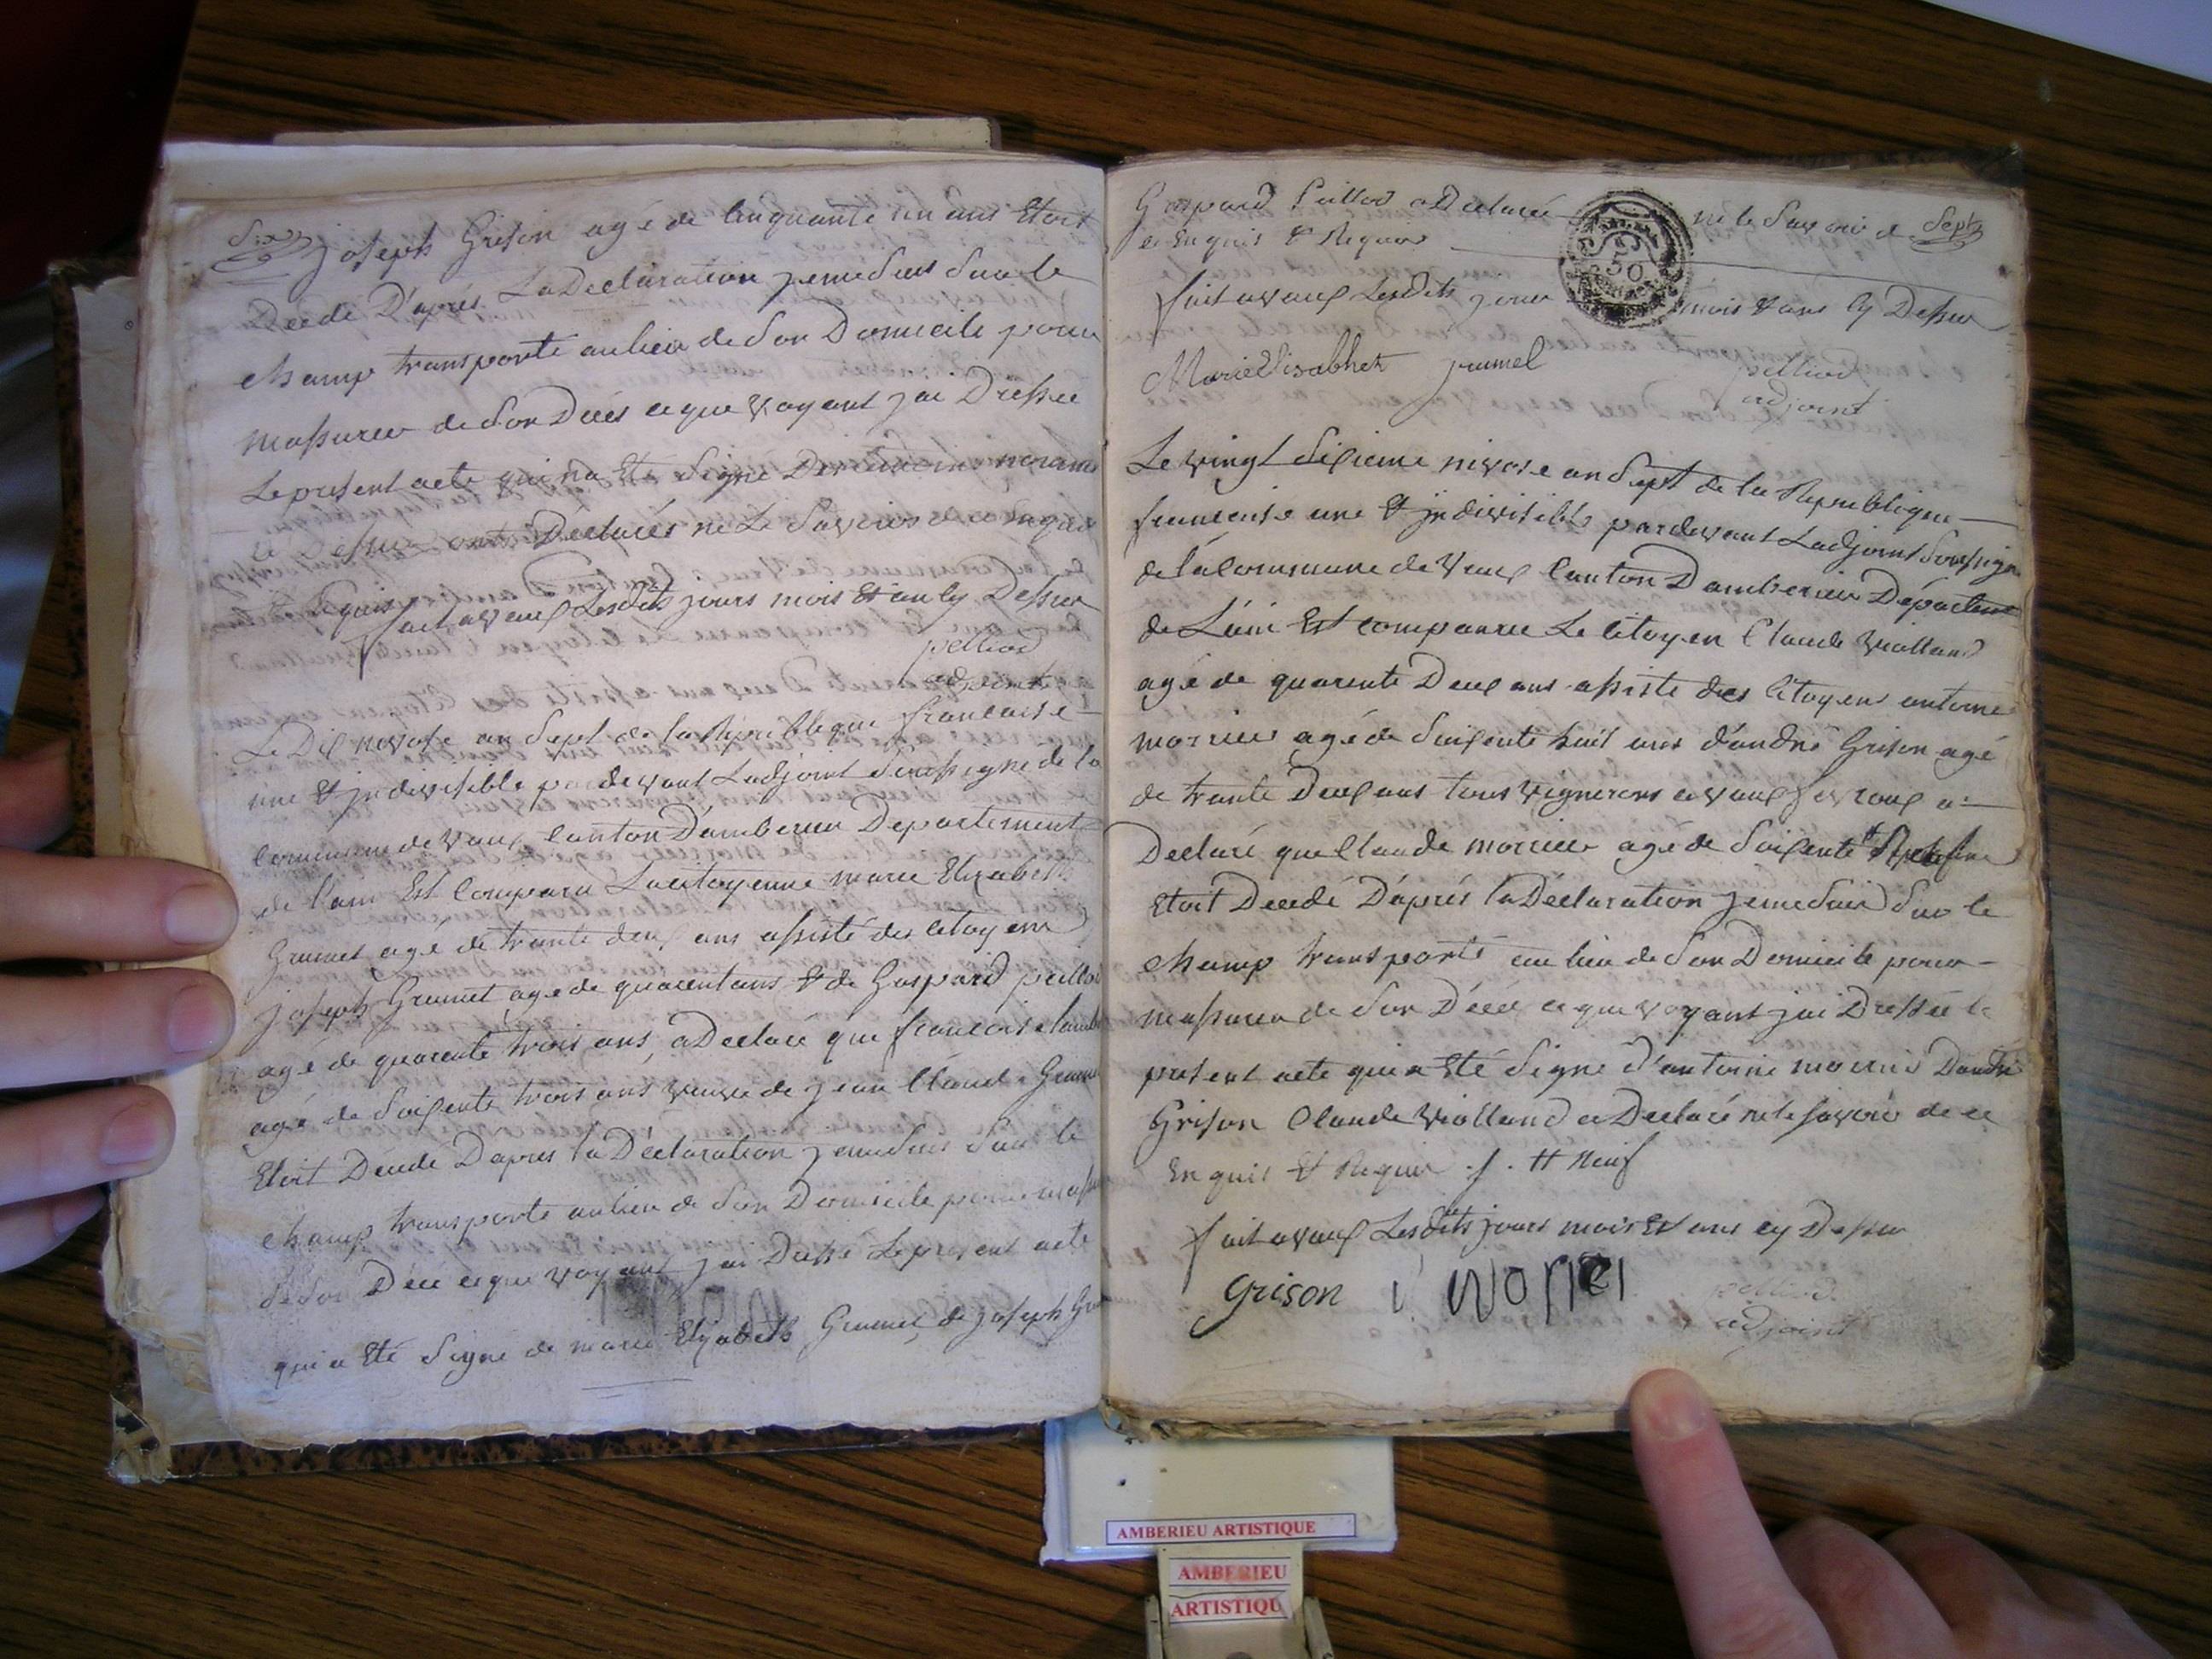 Six
joseph Grison agé de Cinquante un ans Etoit
Decedé D'aprés La Declaration jemesuis sur le
champ transporté au lieu de son Domicile pour
massurer de son Décés ce que Voyant jai Dressee
Le present acte qui na Eté Signé Des temoins
Declarés ne Le Savoir de ce Enquis
Requis
fait a Vaux Lesdits jours mois Et an cy Dessus
pelliod
adjoint
Le Dix nivose an Sept de la Republique francaise
une et jndivisible pardevant Ladjoint Soussigné de la
Commune de Vaux Canton D'amberieu Departement
de l'ain Est Comparu La citoyenne marie Elizabeth
Grumet agé de trante deux ans assisté des citoyens
joseph Grumet agé de quarent ans & de Gaspard
agé de quarente trois ans, a Declaré que francoise
agé de Soixente trois ans veuve de jean Claude
Etoit Décédé Daprés la Déclaration jemesuis Sur le
champ transporté au lieu de Son Domicile pour
de son Décé ce que voyant jai Dressé Le present acte
qui a Eté Signé de marie Elizabeth Grumet, de joseph
Gaspard a Declaré ne le Savoir de Sept
ce Enquis & Requis
fait a Vaux Lesdits jour mois & ans Cy Dessus
Marie Elisabhet grumel pelliod
adjoint
Le vingt Sixieme nivose an Sept de la Republique
francaise une & jndivisible pardevant Ladjoint Soussigné
de la Commune de Vaux Canton Damberieu Département
de Lain Est comparue Le Citoyen Claude Violland
agé de quarente Deux ans assisté des Citoyens antoine
morrier agé de Soixente huit ans d'andré Grison agé
de trante Deux ans tous Vignerons a Vaux
Declaré que Claude morrier agé de Soixente
Etoit Decedé D'aprés la Déclaration jemesuis Sur le
champ transporté au lieu de Son Domicile pour
massurer de Son Décé ce que voyant jai Dressée le
present acte qui a Eté Signé d'antoine morrier Dandré
Grison Claude Violland a Declaré ne le savoir de ce
Enquis & Requis .f. tt Neuf
fait a Vaux Lesdits jours mois Et ans cy Dessus
Grison
adjoint
AMBERIEU ARTISTIQUE
AMBERIEU
ARTISTIQU